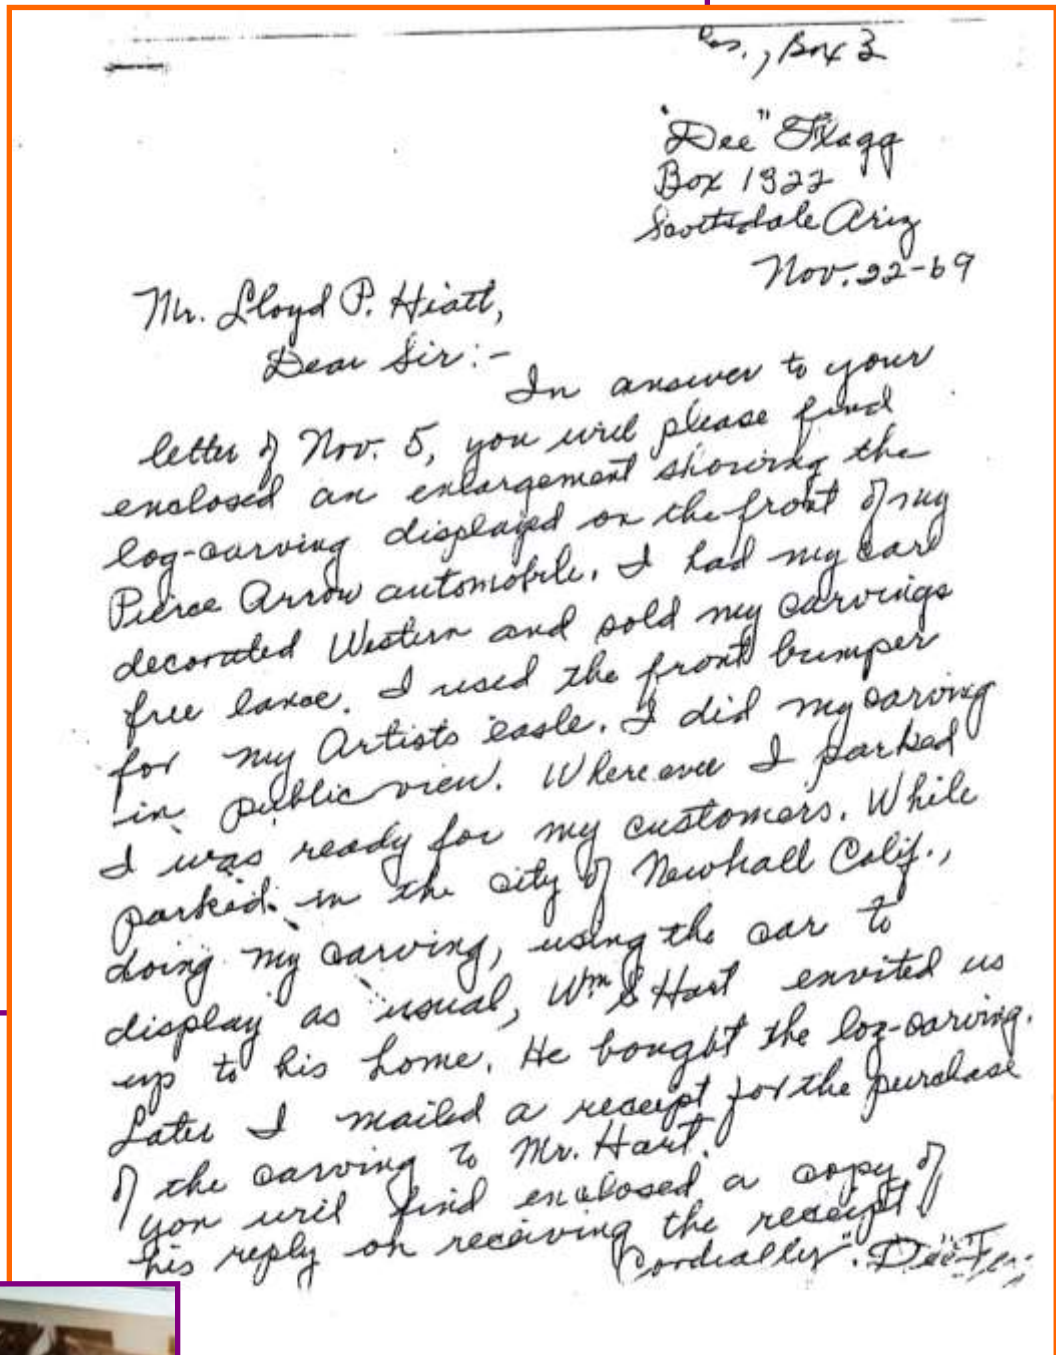 Box 3
"Dee" Flagg
Box 1322
Scottsdale Ariz
Nov. 22-69
Mr. Lloyd P. Hiatt,
Dear Sir:-
In answer to your
letter of Nov. 5, you will please find
enclosed an enlargement showing the
log-carving displayed on the front of my
Pierce Arrow automobile. I had my car
decorated Western and sold my carvings
free lance. I used the front bumper
for my Artists easle. I did my carving
in public view. Where ever I parked
I was ready for my customers. While
parked in the city of Newhall Calif.,
doing my carving, using the car to
display as usual, Wm S Hart envited us
up to his home. He bought the log-carving.
Later I mailed a receipt for the purchase
of the carving to Mr. Hart.
you will find enclosed a copy of
his reply on receiving the receipt
Cordially "Dee"